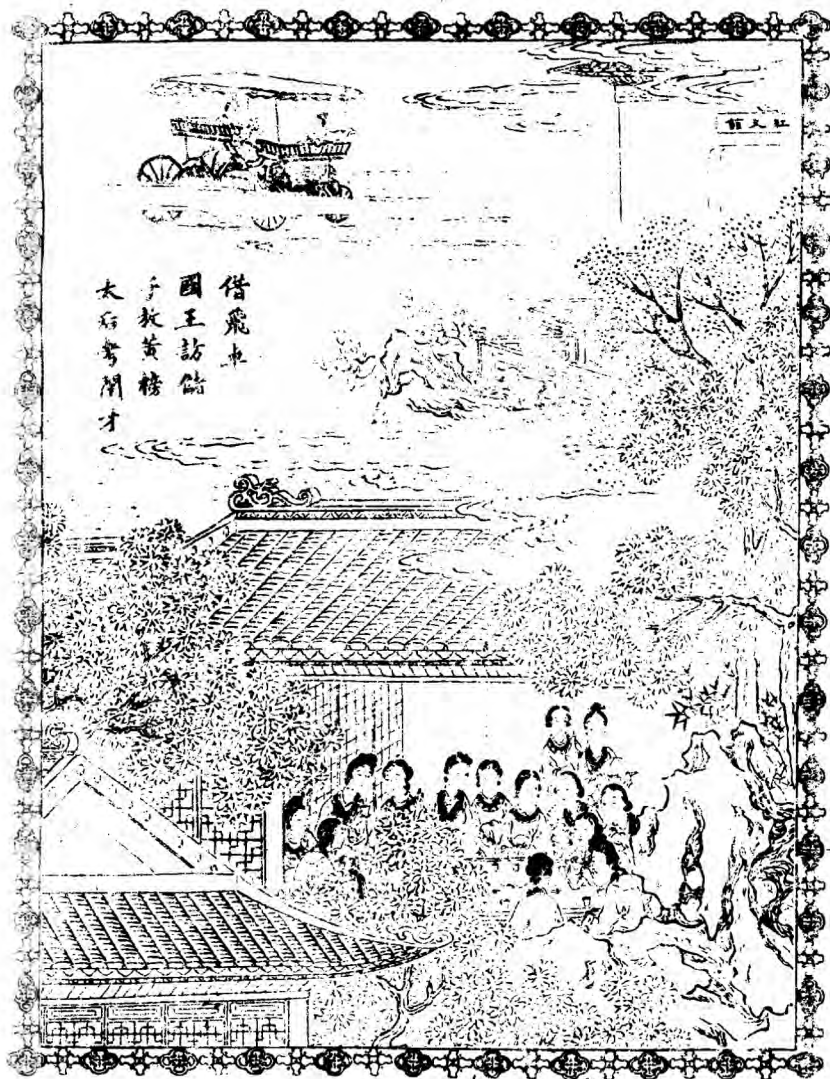 紅文館
借飛車
國王訪儲
子放黃榜
太后考閨才